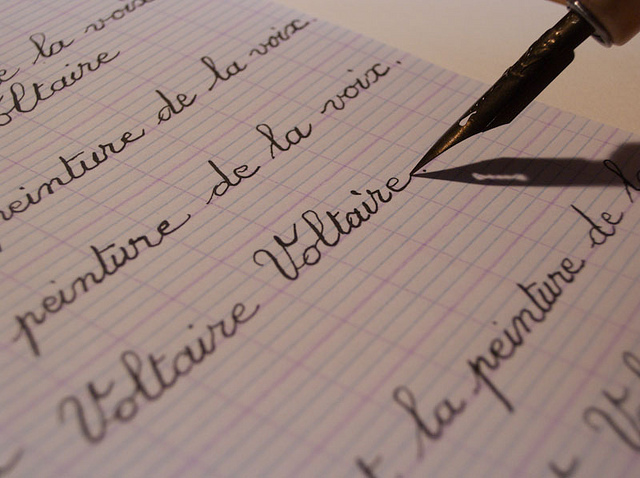 la voix
Voltaire
peinture de la voix.
peinture de la voix.
Voltaire Voltaire
la peinture de la